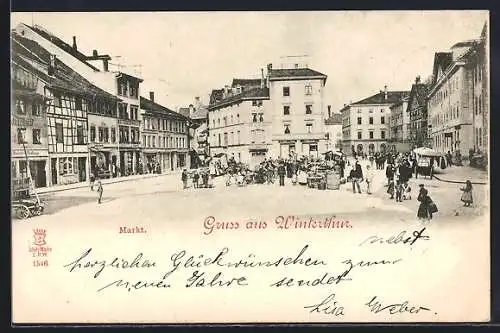 Gruss aus Winterthur.
Markt.
1546
nebst
herzlichen Glückwünschen zum
neuen Jahre sendet
Lisa Weber